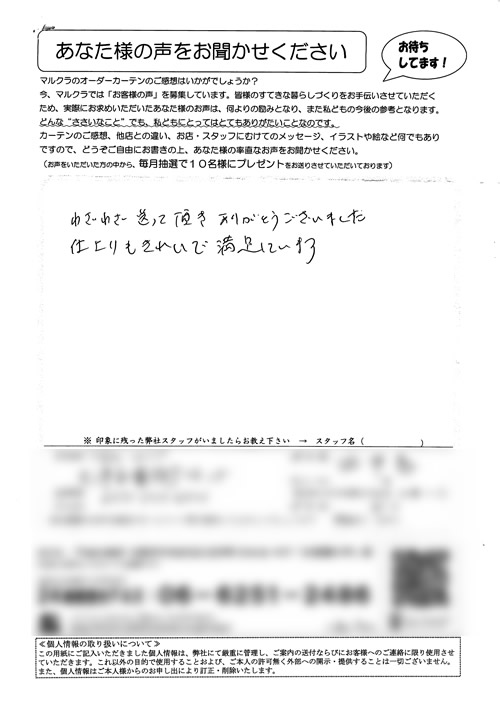 あなた様の声をお聞かせください
お待ち
してます！
マルクラのオーダーカーテンのご感想はいかがでしょうか？
今、マルクラでは「お客様の声」を募集しています。皆様のすてきな暮らしづくりをお手伝いさせていただく
ため、実際にお求めいただいたあなた様のお声は、何よりの励みとなり、また私どもの今後の参考となります。
どんな“ささいなこと”でも、私どもにとってはとてもありがたいことなのです。
カーテンのご感想、他店との違い、お店・スタッフにむけてのメッセージ、イラストや絵など何でもあり
ですので、どうぞご自由にお書きの上、あなた様の率直なお声をお聞かせください。
（お声をいただいた方の中から、毎月抽選で１０名様にプレゼントをお送りさせていただいております）
わざわざ送って頂きありがとうございました
仕上りもきれいで満足しています
※ 印象に残った弊社スタッフがいましたらお教え下さい → スタッフ名（ ）
06-6251-2486
≪個人情報の取り扱いについて≫
この用紙にご記入いただきました個人情報は、弊社にて厳重に管理し、ご案内の送付ならびにお客様へのご連絡に限り使用させ
ていただきます。これ以外の目的で使用することおよび、ご本人の許可無く外部への開示・提供することは一切ございません。
また、個人情報はご本人様からのお申し出により訂正・削除いたします。